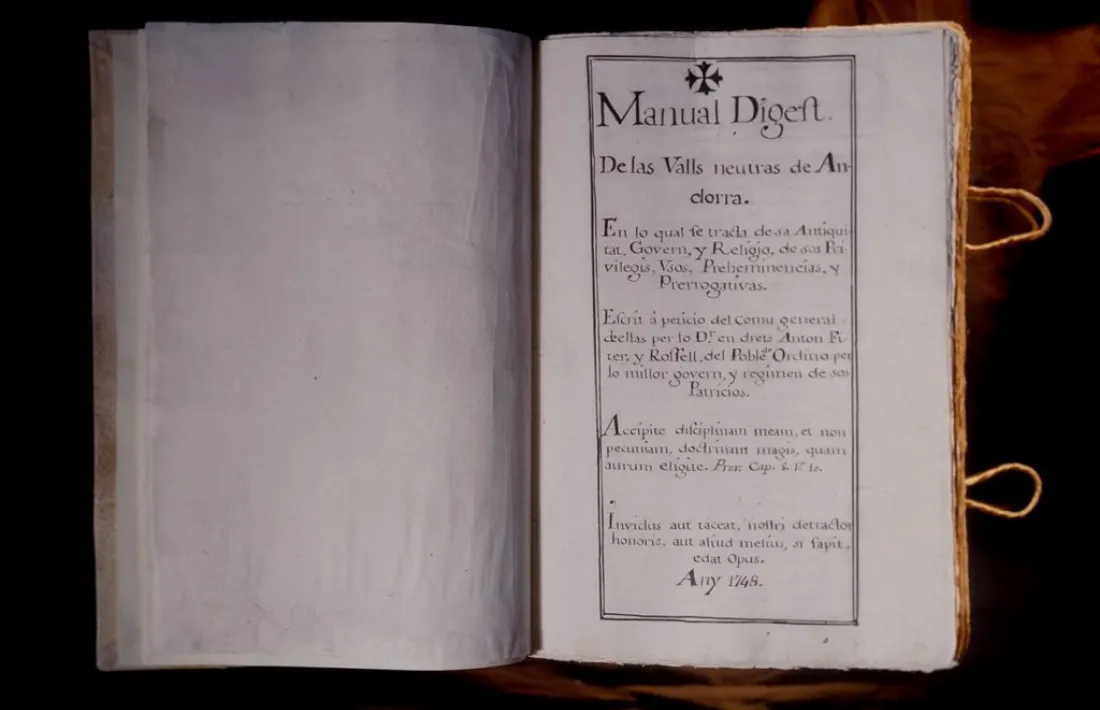 Manual Digeſt.
De las Valls neutras de An-
dorra.
En lo qual ſe tracta de sa Antiqui
tat, Govern, y Religio, de sos Pri-
vilegis, Vsos, Preheminencias, y
Prerrogativas.
Eſcrit á peticio del Comu general
dellas per lo Dr. en drets Anton Fi-
ter, y Roſſell, del Poble de Ordino per
lo millor govern, y regimen de sos
Patricios.
Accipite diſciplinam meam, et non
pecuniam, doctrinam magis, quam
aurum eligite. Prov. Cap. 8. V. 10.
Invidus aut taceat, noſtri detractor
honoris, aut aliud melius, si ſapit,
edat Opus.
Any 1748.